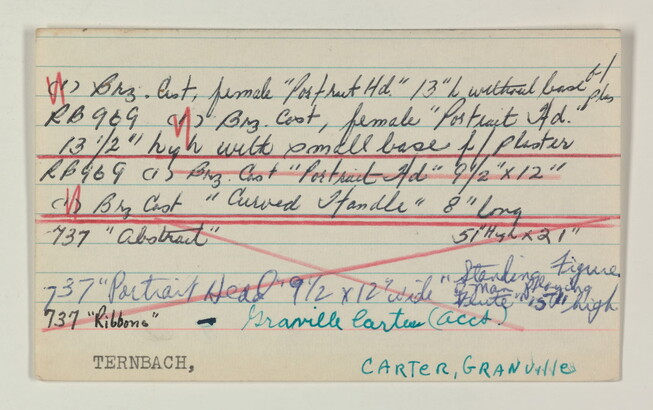 (1) Brz. Cast, female "Portrait Hd." 13"h without base f/ plas
RB969 (1) Brz. Cast, female "Portrait Hd."
13 1/2" high with small base f/ plaster
RB969 (1) Brz. Cast "Portrait Hd" 9 1/2" x 12"
(1) Brz Cast "Curved Handle" 8" long
737 "Abstract" 51" Hgh x 21"
737 "Portrait Head" 9 1/2 x 12" wide "Standing Figure
Man Playing
Flute" 15" high
737 "Ribbons" - Granville Carter (acct.)
TERNBACH, CARTER, GRANVILLE